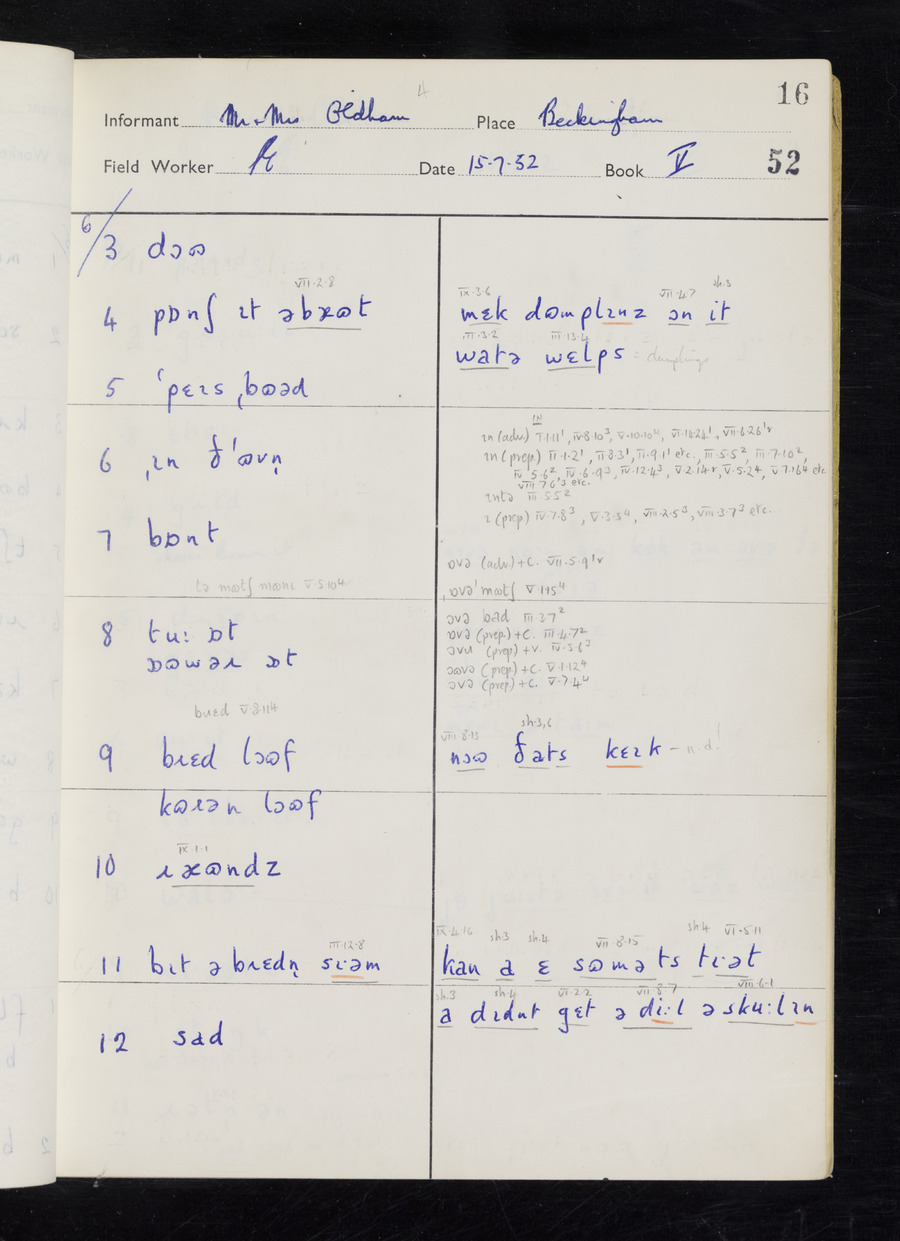 16
Informant Mr & Mrs Oldham Place Beckingham
Field Worker Date 15·7·52 Book V 52
6/3 dɔɷ
VII·2·8
4 pɒnʃ ɪt əbæɷt
IX·3·6 VII·4·7 sh.3
mɛk dɷmplɪnz ɔn it
III·3·2 III·13·4
watə wɛlps = dumplings
5 ˈpɛɪs ˌbɷəd
6 ˌɪn ð ˈɷvn̩
IN
ɪn (adv) I·1·11¹, IV·8·10³, V·10·10⁴, VI·14·24¹, VII·6·26¹r
ɪn (prep) II·1·2¹, II·8·3¹, II·9·1¹ etc., III·5·5², III·7·10²,
IV·5·6², IV·6·9³, IV·12·4³, V·2·14r, V·5·2⁴, V·7·16⁴ etc
VIII·7·6¹3 etc.
ɪntə III·5·5²
ɪ (prep) IV·7·8³, V·3·5⁴, VIII·2·5³, VIII·3·7³ etc.
7 bɒnt
tə mɷtʃ V·5·10⁴
ɔvə (adv) + C. VII·5·9¹r
ˌɔvəˈmɷtʃ V·1·15⁴
8 tu: ɒt
ɒɷwəɹ ɒt
ɔvə bad III·3·7²
ɔvə (prep) + C. III·4·7²
(prep) + V. IV·3·6³
(prep) + C. V·1·12⁴
ɔvə (prep) + C. V·7·4⁴
V·8·11⁴
9 bɹɛd lɔɷf
VIII·8·13 sh.3,6
nɔɷ ðats kɛɪk – n.d!
kɷɹən lɔɷf
IX·1·1
10 ɹæɷndz
III·12·8
11 bɪt ə bɹɛdn̩ sɪəm
IX·4·16 sh3 sh.4 VII·8·15 sh4 VI·5·11
kan a ɛ sɷməts tɪ·ət
sh.3 sh.4 VI·2·2 VII·8·7 VIII·6·1
a dɪdnt gɛt ə di:l ə sku:lɪn
12 sad